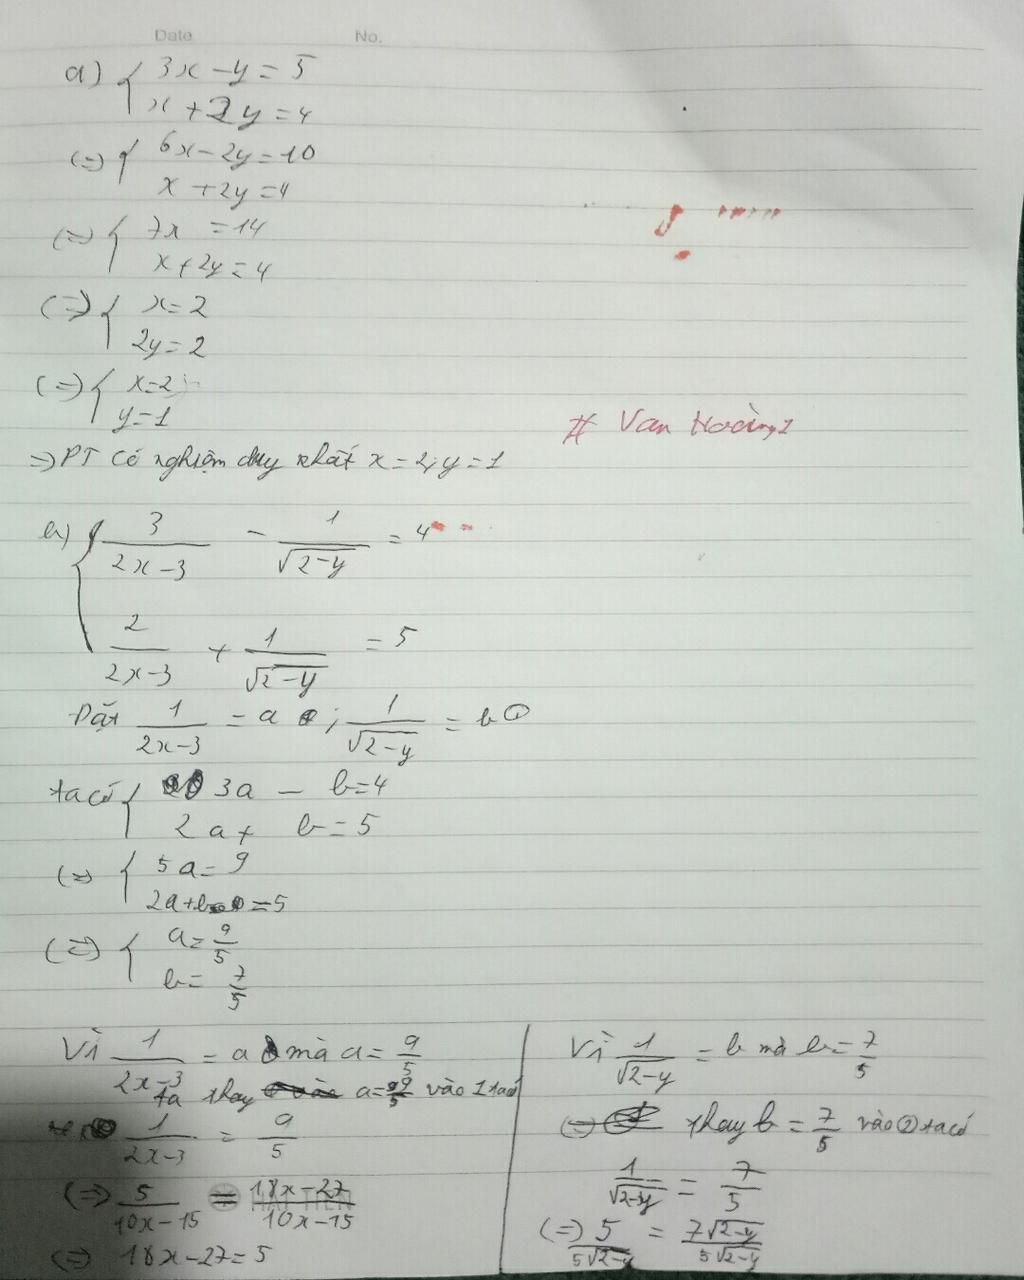 Date No.
a) { 3x - y = 5
x + 2y = 4
(=) { 6x - 2y = 10
x + 2y = 4
(=) { 7x = 14
x + 2y = 4
(=) { x = 2
2y = 2
(=) { x = 2
y = 1
# Van Hoàng
=) PT có nghiệm duy nhất x = 2; y = 1
b) { 3/(2x-3) - 1/√(2-y) = 4
2/(2x-3) + 1/√(2-y) = 5
Đặt 1/(2x-3) = a ; 1/√(2-y) = b ①
ta có { 3a - b = 4
2a + b = 5
(=) { 5a = 9
2a + b = 5
(=) { a = 9/5
b = 7/5
Vì 1/(2x-3) = a mà a = 9/5
ta thay a = 9/5 vào 1 ta có
1/(2x-3) = 9/5
(=) 5/(10x-15) = (18x-27)/(10x-15)
HẢI TIẾN
(=) 18x - 27 = 5
Vì 1/√(2-y) = b mà b = 7/5
thay b = 7/5 vào ② ta có
1/√(2-y) = 7/5
(=) 5/(5√(2-y)) = 7√(2-y)/(5√(2-y))